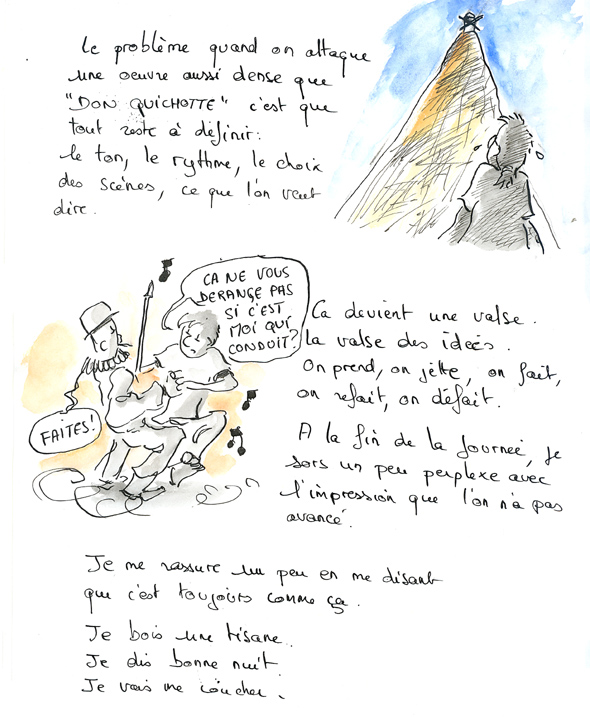 Le problème quand on attaque
une oeuvre aussi dense que
"DON QUICHOTTE" c'est que
tout reste à définir:
le ton, le rythme, le choix
des scènes, ce que l'on veut
dire.
CA NE VOUS
DERANGE PAS
SI C'EST
MOI QUI
CONDUIT?
FAITES!
Ca devient une valse.
la valse des ideés.
On prend, on jette, on fait,
on refait, on défait.
A la fin de la journeé, je
sors un peu perplexe avec
l'impression que l'on n'a pas
avancé.
Je me rassure un peu en me disant
que c'est toujours comme ça.
Je bois une tisane.
Je dis bonne nuit.
Je vais me coucher.